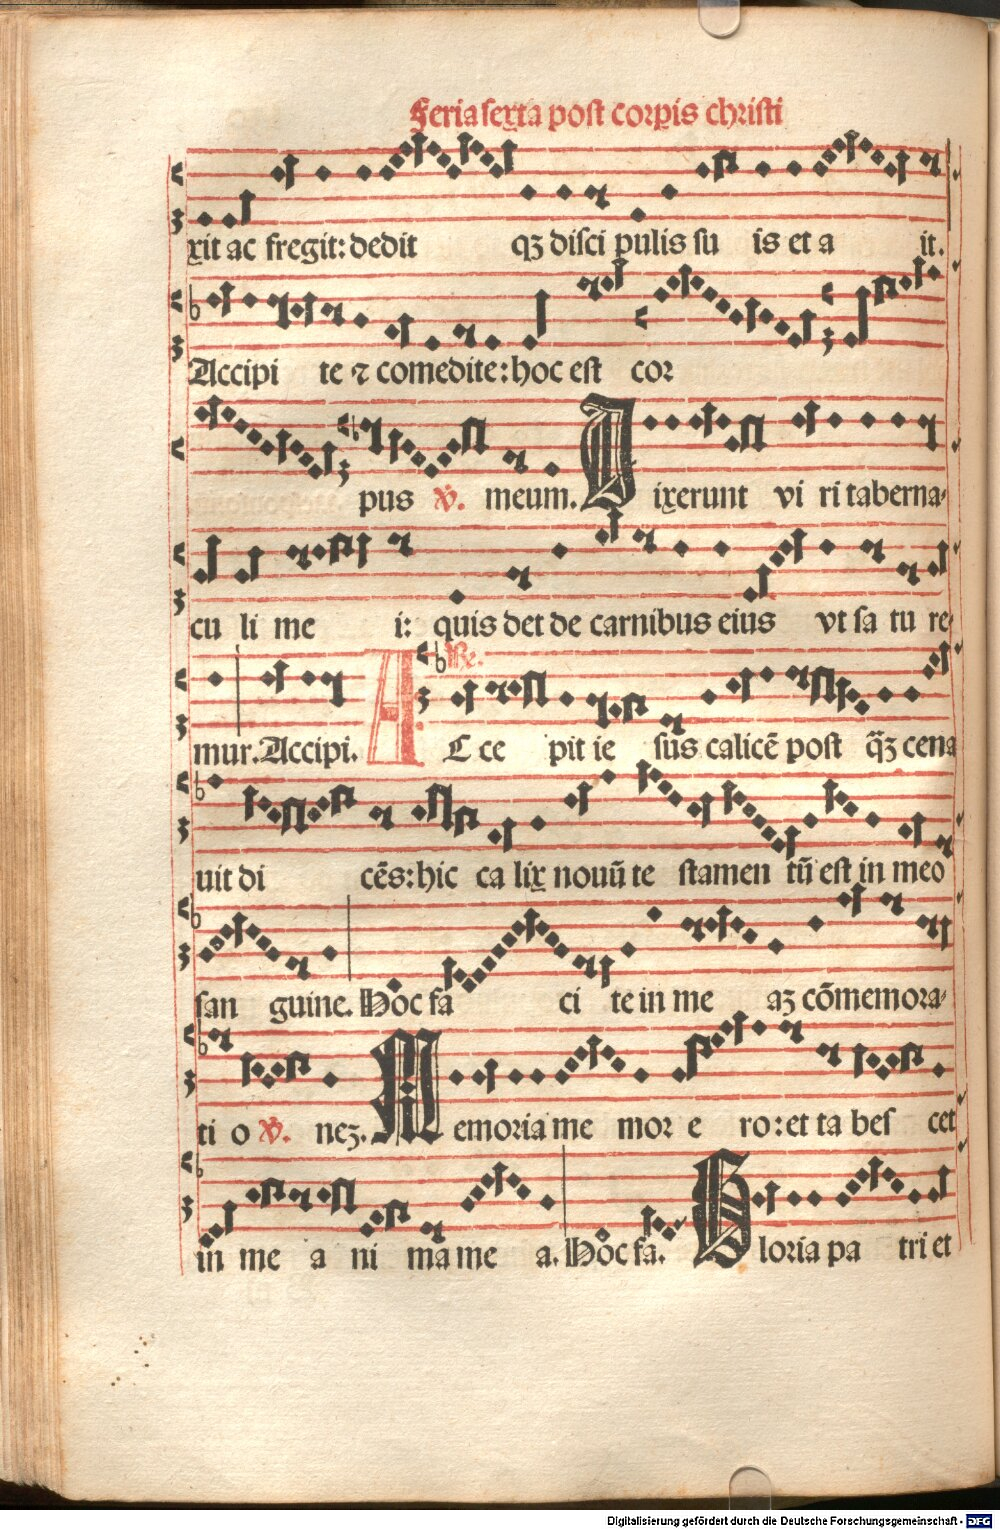 Feria sexta post corpis christi
xit ac fregit: dedit qꝫ disci pulis su is et a it.
Accipi te ⁊ comedite: hoc est cor
pus V̄. meum. Dixerunt vi ri taberna-
cu li me i: quis det de carnibus eius vt sa tu re
mur. Accipi. Re. AC ce pit ie sus calicē post q̄ꝫ cena
uit di cēs: hic ca lix nouū te stamen tū est in meo
san guine. Hoc fa ci te in me aꝫ cōmemora-
ti o V̄. neꝫ. Memoria me mor e ro: et ta bes cet
in me a ni ma me a. Hoc fa. Gloria pa tri et
Digitalisierung gefördert durch die Deutsche Forschungsgemeinschaft - DFG